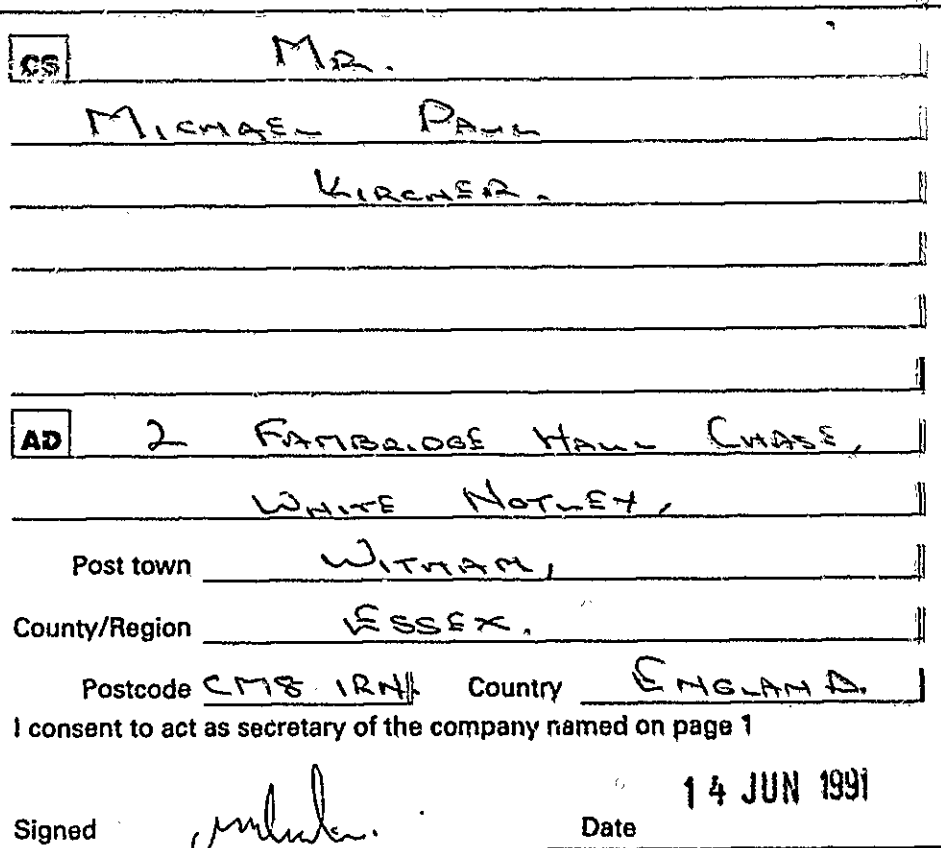 CS MR.
MICHAEL PAUL
KIRCHER.
AD 2 FAMBRIDGE HALL CHASE,
WHITE NOTLEY,
Post town WITHAM,
County/Region ESSEX.
Postcode CM8 1RN Country ENGLAND.
I consent to act as secretary of the company named on page 1
14 JUN 1991
Signed Date